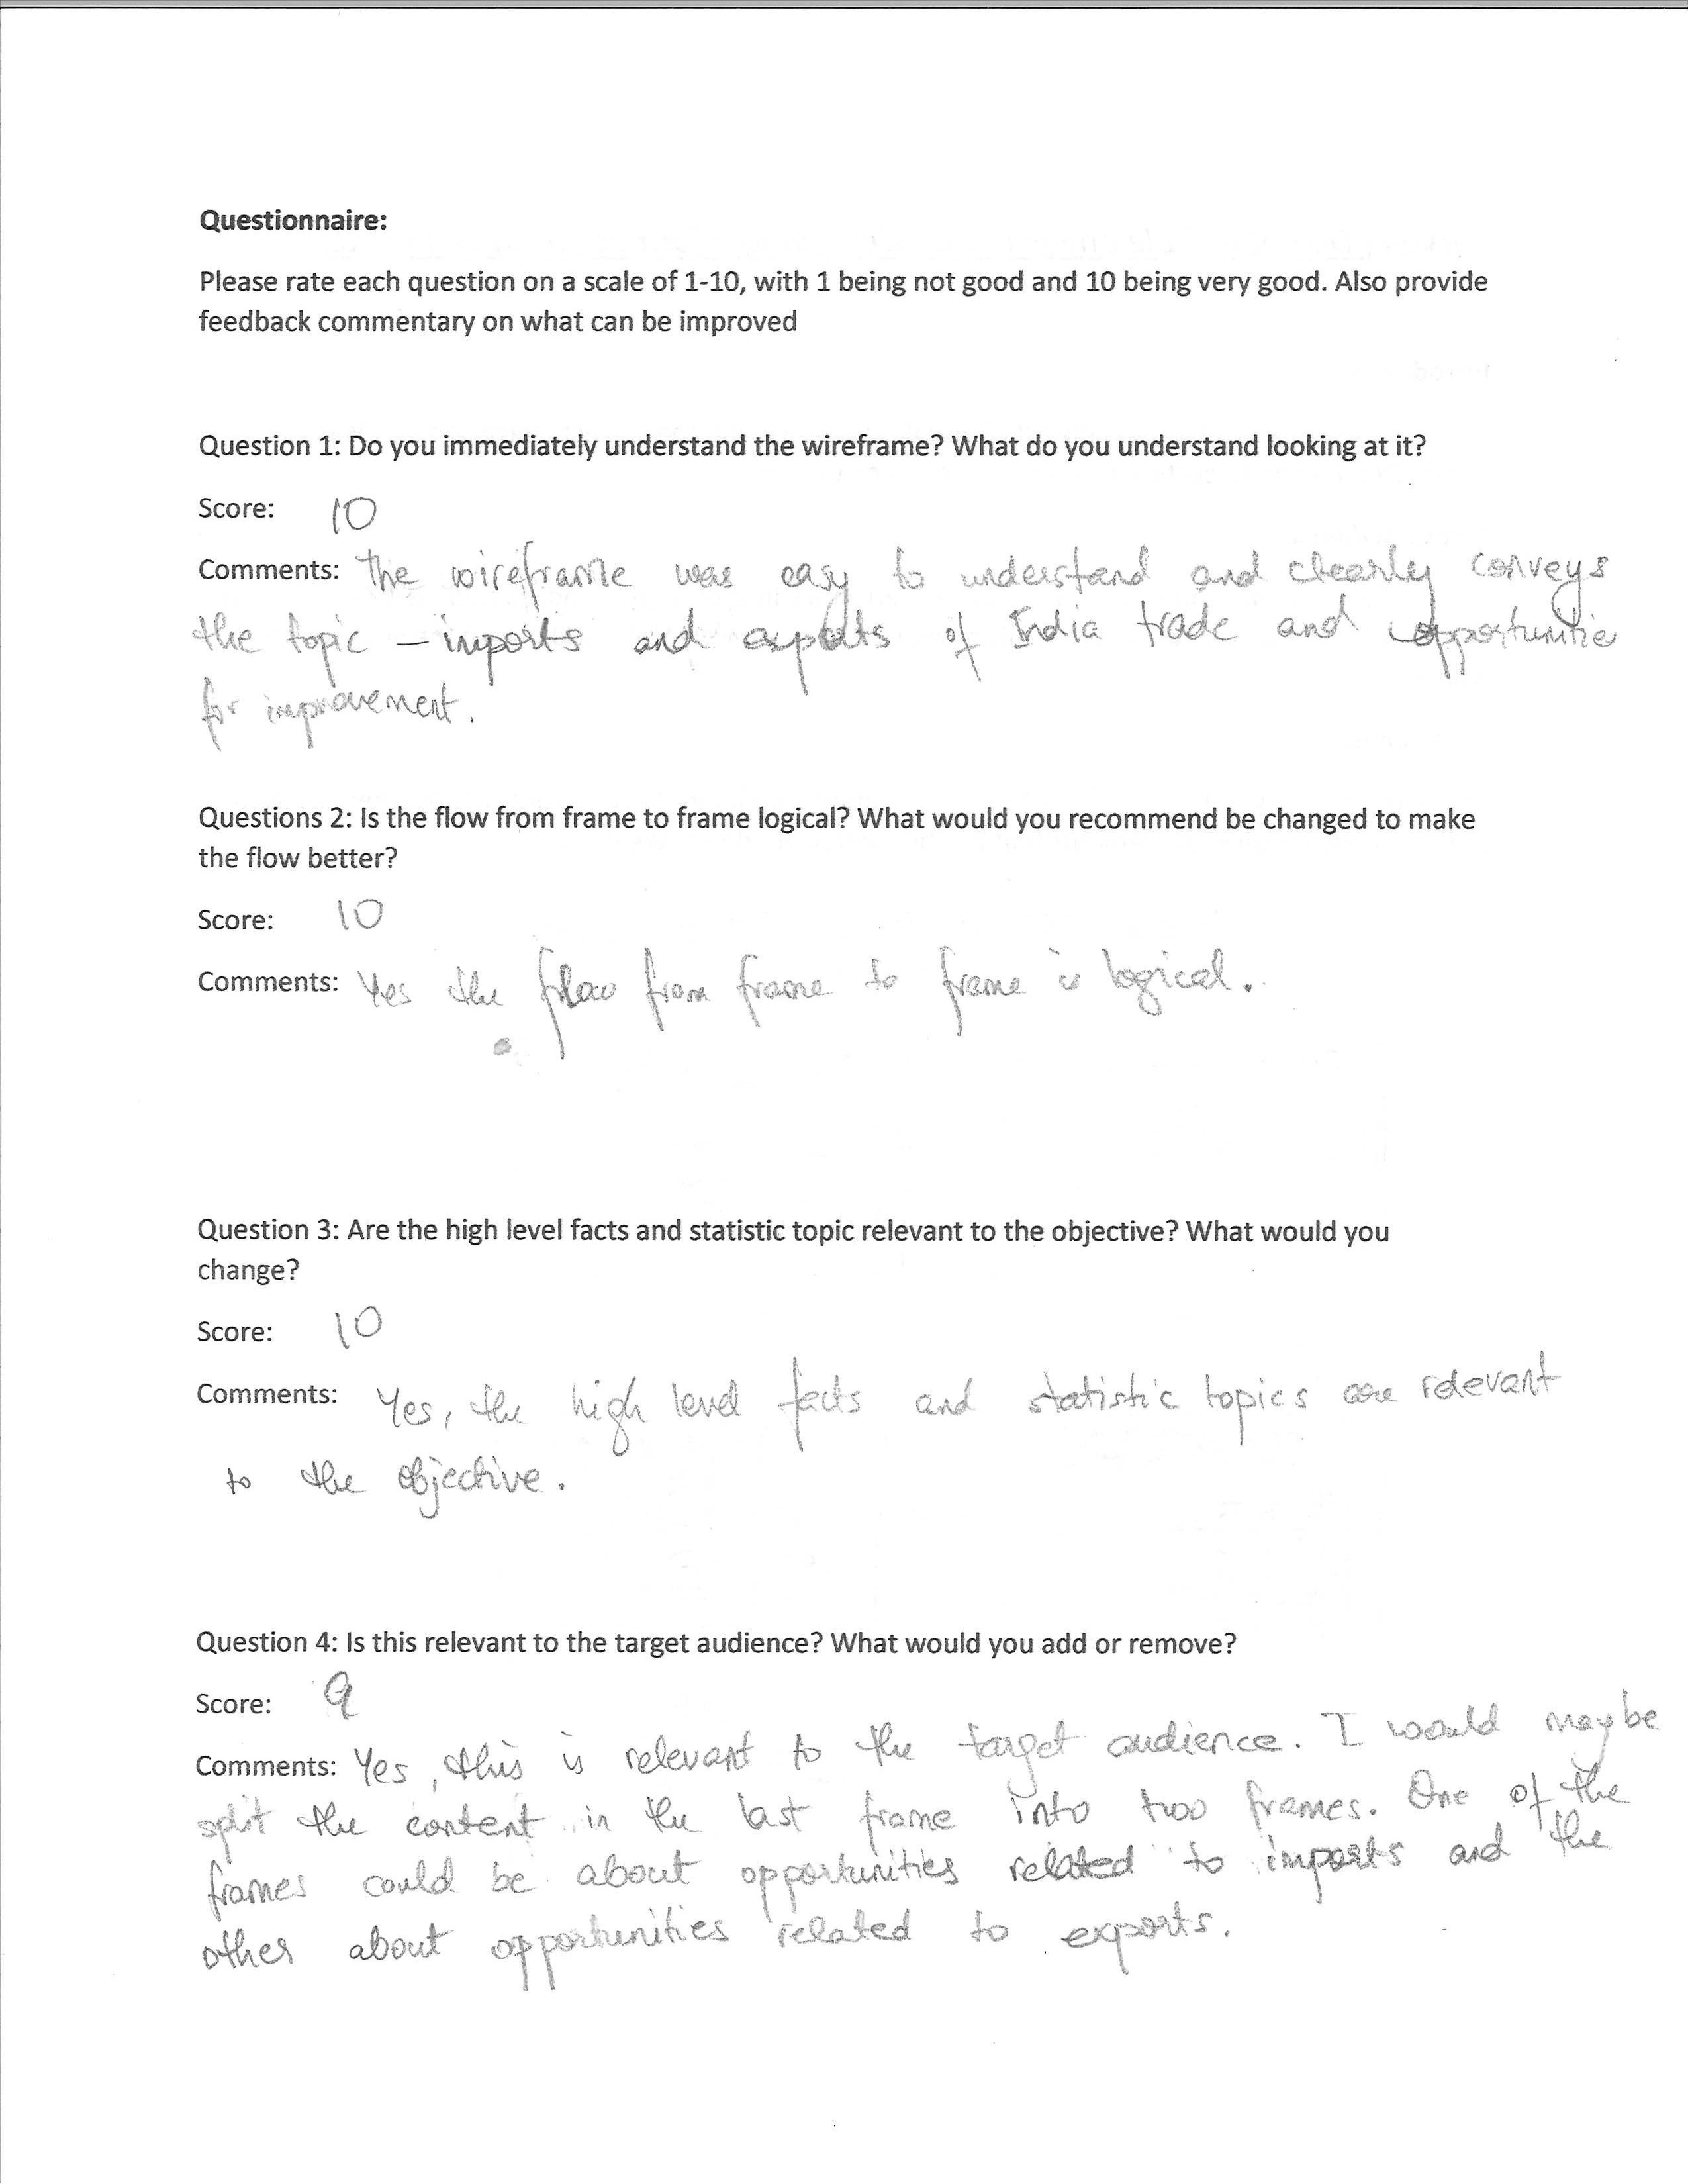 Questionnaire:
Please rate each question on a scale of 1-10, with 1 being not good and 10 being very good. Also provide
feedback commentary on what can be improved
Question 1: Do you immediately understand the wireframe? What do you understand looking at it?
Score: 10
Comments: The wireframe was easy to understand and clearly conveys
the topic – imports and exports of India trade and opportunitie
for improvement.
Questions 2: Is the flow from frame to frame logical? What would you recommend be changed to make
the flow better?
Score: 10
Comments: Yes the flow from frame to frame is logical.
Question 3: Are the high level facts and statistic topic relevant to the objective? What would you
change?
Score: 10
Comments: Yes, the high level facts and statistic topics are relevant
to the objective.
Question 4: Is this relevant to the target audience? What would you add or remove?
Score: 9
Comments: Yes, this is relevant to the target audience. I would maybe
split the content in the last frame into two frames. One of the
frames could be about opportunities related to imports and the
other about opportunities related to exports.